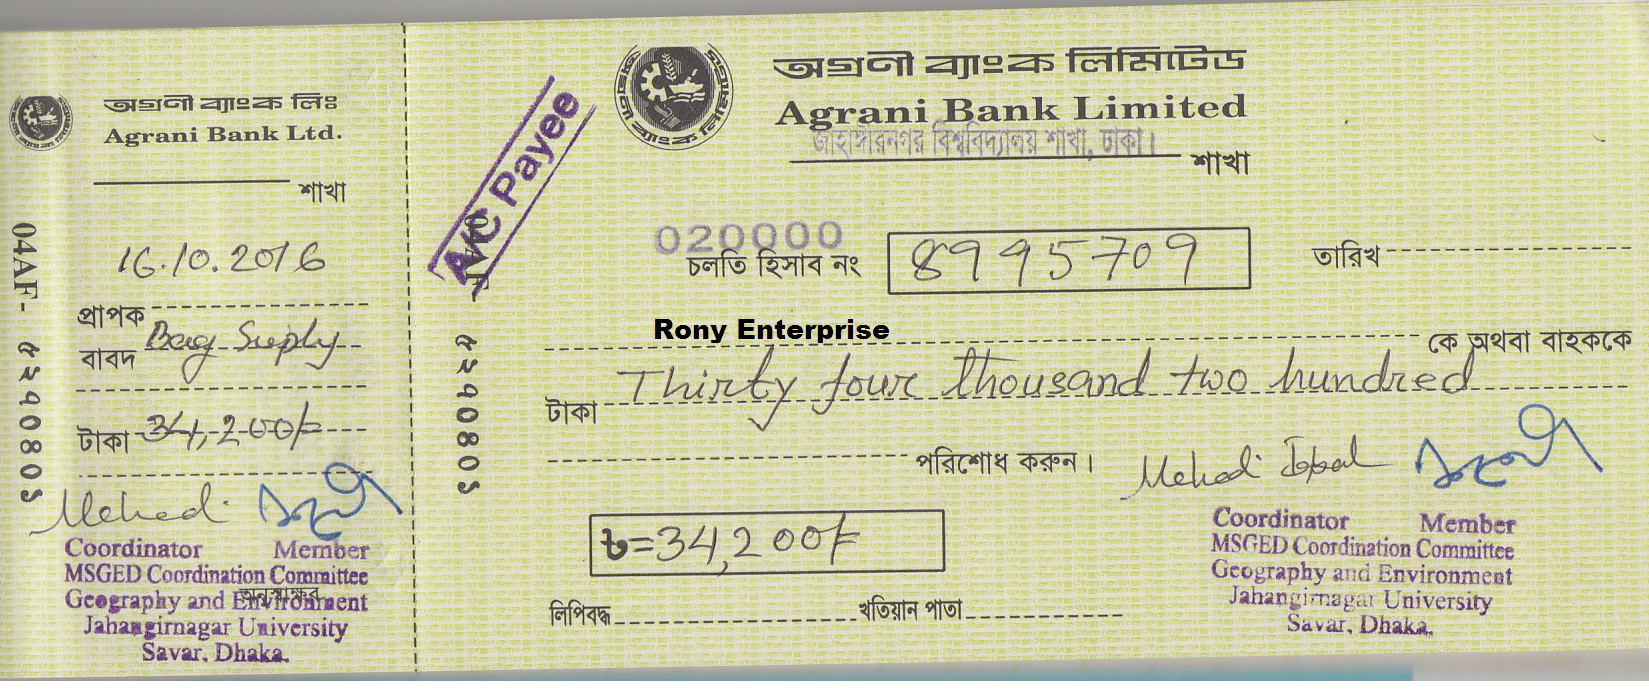 অগ্রণী ব্যাংক লিঃ
Agrani Bank Ltd.
শাখা
16.10.2016
প্রাপক
বাবদ Bag Suply
টাকা 34,200/=
Mehedi
Coordinator Member
MSGED Coordination Committee
অনুস্বাক্ষর
Geography and Environment
Jahangirnagar University
Savar, Dhaka.
04AF- ৫২৭০৪০১
A/C Payee
অগ্রণী ব্যাংক লিমিটেড
Agrani Bank Limited
জাহাঙ্গীরনগর বিশ্ববিদ্যালয় শাখা, ঢাকা।
শাখা
020000
চলতি হিসাব নং 8995709
তারিখ
Rony Enterprise
কে অথবা বাহককে
টাকা Thirty four thousand two hundred
পরিশোধ করুন।
04AF- ৫২৭০৪০১
Mehedi Iqbal
৳=34,200/=
Coordinator Member
MSGED Coordination Committee
Geography and Environment
Jahangirnagar University
Savar, Dhaka.
লিপিবদ্ধ খতিয়ান পাতা